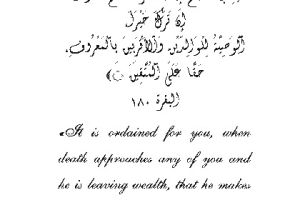 إِن تَرَكَ خَيْرًا
ٱلْوَصِيَّةُ لِلْوَٰلِدَيْنِ وَٱلْأَقْرَبِينَ بِٱلْمَعْرُوفِ،
حَقًّا عَلَى ٱلْمُتَّقِينَ ﴾
البقرة ١٨٠
«It is ordained for you, when
death approaches any of you and
he is leaving wealth, that he makes